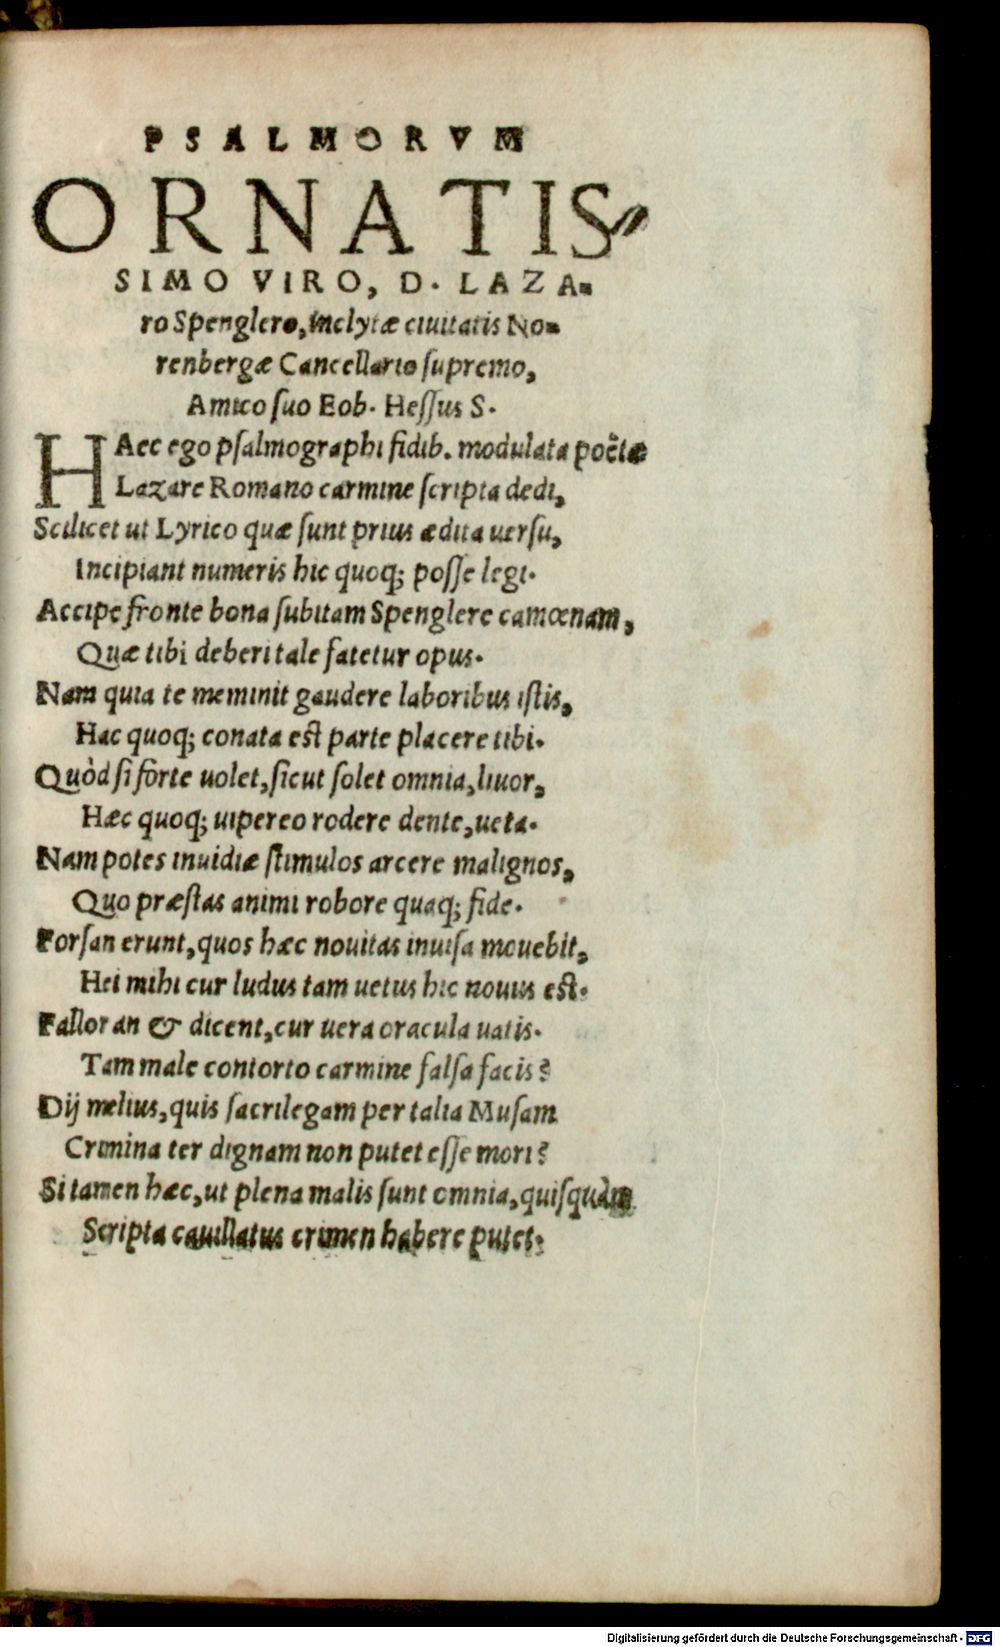 PSALMORVM
ORNATIS-
SIMO VIRO, D. LAZA-
ro Spenglero, inclytæ ciuitatis No-
renbergæ Cancellario supremo,
Amico suo Eob. Hessus S.
HAec ego psalmographi fidib. modulata poëtæ
Lazare Romano carmine scripta dedi,
Scilicet ut Lyrico quæ sunt prius ædita uersu,
Incipiant numeris hic quoq; posse legi.
Accipe fronte bona subitam Spenglere camœnam,
Quæ tibi deberi tale fatetur opus.
Nam quia te meminit gaudere laboribus istis,
Hac quoq; conata est parte placere tibi.
Quòd si forte uolet, sicut solet omnia, liuor,
Hæc quoq; uipereo rodere dente, ueta.
Nam potes inuidiæ stimulos arcere malignos,
Quo præstas animi robore quaq; fide.
Forsan erunt, quos hæc nouitas inuisa mouebit,
Hei mihi cur ludus tam uetus hic nouus est.
Fallor an & dicent, cur uera oracula uatis.
Tam male contorto carmine falsa facis?
Dij melius, quis sacrilegam per talia Musam
Crimina ter dignam non putet esse mori?
Si tamen hæc, ut plena malis sunt omnia, quisquàm
Scripta cauillatus crimen habere putet.
Digitalisierung gefördert durch die Deutsche Forschungsgemeinschaft - DFG